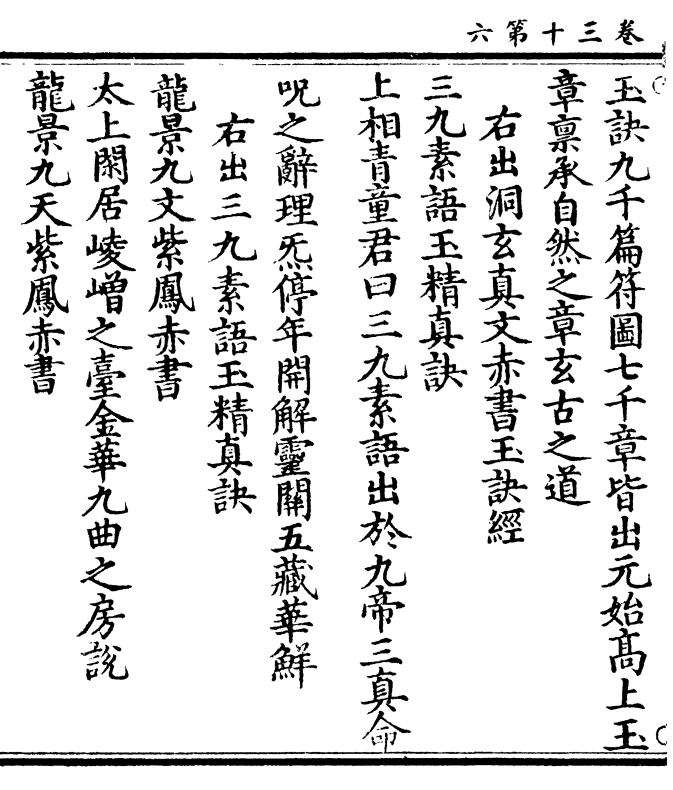 卷三十第六
玉訣九千篇符圖七千章皆出元始髙上玉
章禀承自然之章玄古之道
右出洞玄真文赤書玉訣經
三九素語玉精真訣
上相青童君曰三九素語出於九帝三真命
呪之辭理炁停年開解靈關五藏華鮮
右出三九素語玉精真訣
龍景九文紫鳳赤書
太上閑居崚嶒之臺金華九曲之房說
龍景九天紫鳳赤書